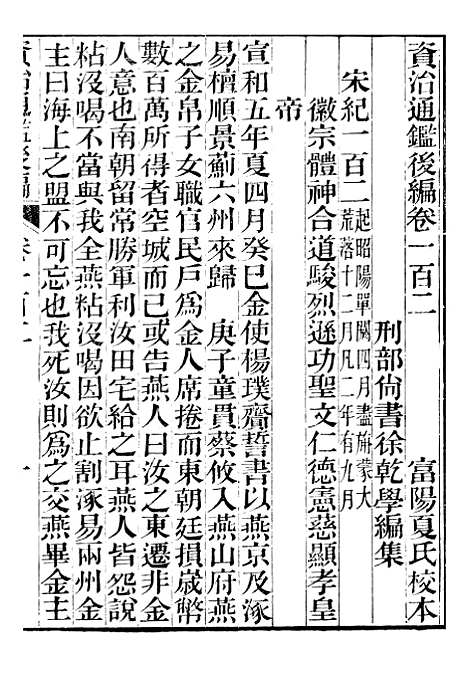 資治通鑑後編卷一百二　富陽夏氏校本
刑部尙書徐乾學編集
宋紀一百二起昭陽單閼四月盡旃蒙大荒落十二月凡二年有九月
徽宗體神合道駿烈遜功聖文仁德憲慈顯孝皇
帝
宣和五年夏四月癸巳金使楊璞齎誓書以燕京及涿
易檀順景薊六州來歸　庚子童貫蔡攸入燕山府燕
之金帛子女職官民戶爲金人席捲而東朝廷損歲幣
數百萬所得者空城而已或告燕人曰汝之東遷非金
人意也南朝留常勝軍利汝田宅給之耳燕人皆怨說
粘沒喝不當與我全燕粘沒喝因欲止割涿易兩州金
主曰海上之盟不可忘也我死汝則爲之交燕畢金主
卷一百二　一